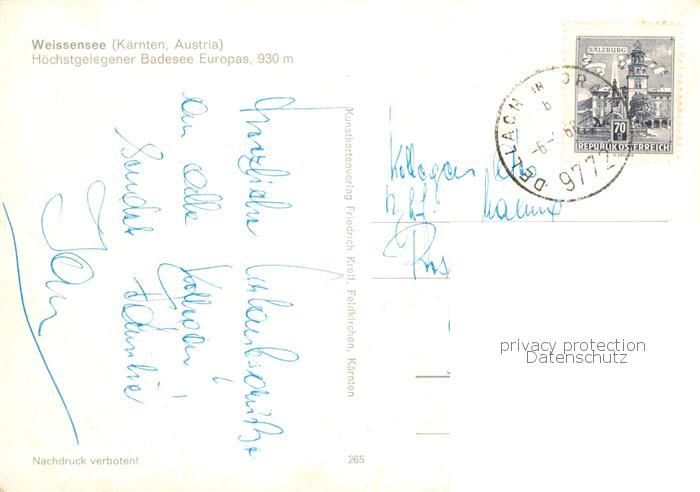 Weissensee (Kärnten, Austria)
Höchstgelegener Badesee Europas, 930 m
Herzliche Urlaubsgrüße
an alle Kollegen!
sendet Familie
Kunstkartenverlag Friedrich Kreil, Feldkirchen, Kärnten
SALZBURG
70
REPUBLIK ÖSTERREICH
DELLACH IM DR
9772
Kollegen
privacy protection
Datenschutz
Nachdruck verboten!
265